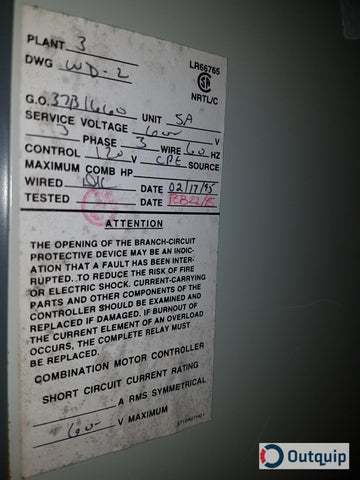 PLANT 3
DWG WD-2
LR66765
NRTL/C
G.O. 37B1660 UNIT 5A
SERVICE VOLTAGE 600 V
3 PHASE 3 WIRE 60 HZ
CONTROL 120V CPT SOURCE
MAXIMUM COMB HP
WIRED DATE 02/17/95
TESTED DATE FEB 22/95
ATTENTION
THE OPENING OF THE BRANCH-CIRCUIT
PROTECTIVE DEVICE MAY BE AN INDIC-
ATION THAT A FAULT HAS BEEN INTER-
RUPTED. TO REDUCE THE RISK OF FIRE
OR ELECTRIC SHOCK, CURRENT-CARRYING
PARTS AND OTHER COMPONENTS OF THE
CONTROLLER SHOULD BE EXAMINED AND
REPLACED IF DAMAGED. IF BURNOUT OF
THE CURRENT ELEMENT OF AN OVERLOAD
OCCURS, THE COMPLETE RELAY MUST
BE REPLACED.
COMBINATION MOTOR CONTROLLER
SHORT CIRCUIT CURRENT RATING
A RMS SYMMETRICAL
600 V MAXIMUM
Outquip